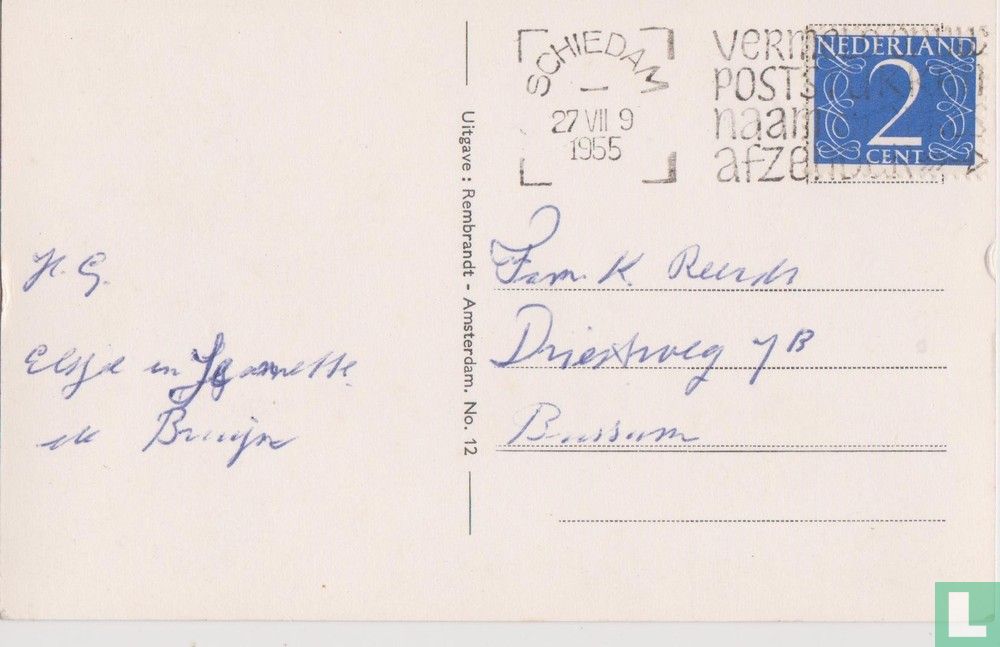 SCHIEDAM
27 VII 9
1955
verm
POSTS
naam
afzender
NEDERLAND
2
CENT
H. G.
Elsje en Jeannette
de Bruijn
Uitgave: Rembrandt - Amsterdam. No. 12
Fam. K.
Driestweg 7B
Bussum
L